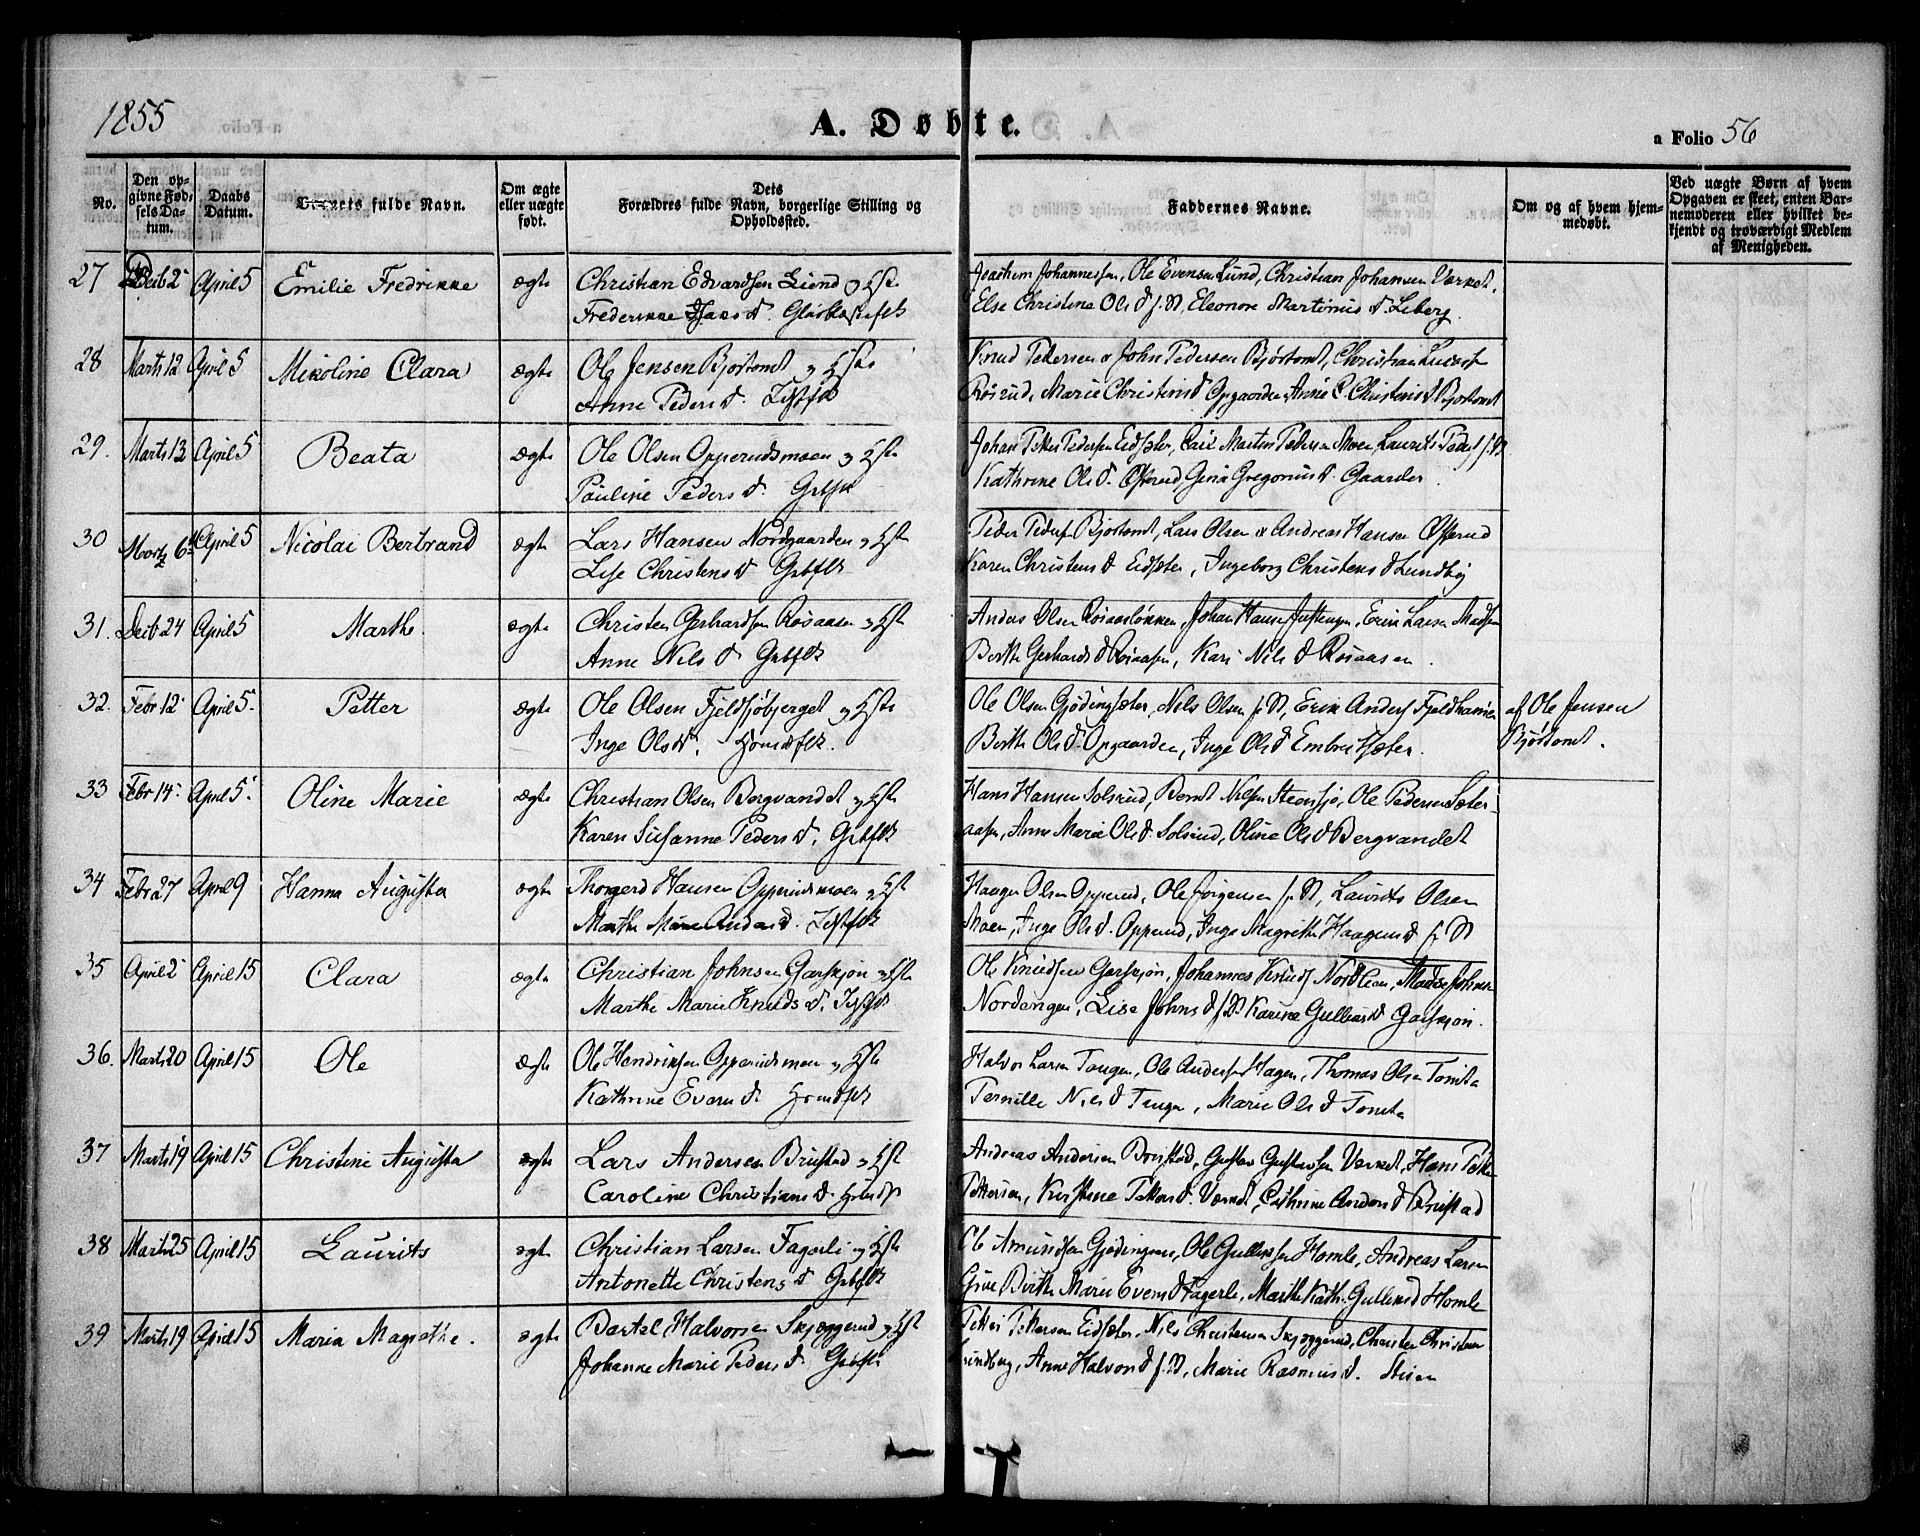 1855
A. Døbte.
a Folio 56
No.
Den opgivne Fødsels Datum.
Daabs Datum.
Barnets fulde Navn.
Om ægte eller uægte født.
Dets Forældres fulde Navn, borgerlige Stilling og Opholdssted.
Faddernes Navne.
Om og af hvem hjemmedøbt.
Ved uægte Børn af hvem Opgaven er skeet, enten Barnemoderen eller hvilket bekjendt og troværdigt Medlem af Menigheden.
27 Decb 2 April 5 Emilie Fredrikke ægte Christian Edvardsen Liend og Hste
Frederikke d.
Joachim Johannessen, Ole Evensen Lund, Christian Johansen Værket,
Else Christine Ols d f. St, Eleonore Martinius d. Leberg
28 Marts 12 April 5 Mikoline Clara ægte Ole Jensen Bjørtomt og Hste
Anne Peders d.
Knud Pedersen o John Pedersen Bjørtomt, Christian
Røsrud, Marie Christens d Opgaarden, Anne C. Christens d Bjørtomt
29. Marts 13 April 5 Beata ægte Ole Olsen Opperudsmoen og Hste
Pauline Peders d. Grbfk
Johan Petter Pedersen Eidsæter, Carl Martin Pedersen Moen, Laurits
Kathrine Ols d. Østerud, Gina Gregorius d. Gaarder
30 Marts 6 April 5 Nicolai Bertrand ægte Lars Hansen Nordgaarden og Hste
Lise Christens d Grbfk
Peder Peders Bjørtomt, Lars Olsen o Andreas Hansen Østerud
Karen Christens d Eidsæter, Ingeborg Christens d Lundby
31. Decb 24 April 5 Marthe ægte Christen Gerhardsen Røsaasen og Hste
Anne Nils d Grbfk
Anders Olsen Røsaasløkken, Johan Hansen, Erik Larsen Madsen
Berthe Gerhards d Røsaasen, Kari Nils d Røsaasen
32. Febr 12 April 5 Petter ægte Ole Olsen Fjeldsjøbjerget og Hste
Inge Ols d.
Ole Olsen Gjødingsæter, Nils Olsen f. St, Erik Anders
Berthe Ols d Opgaarden, Inge Ols d Embretsæter.
af Ole Jensen
Bjørtomt.
33 Febr 14 April 5 Oline Marie ægte Christian Olsen Bergvandet og Hste
Karen Susanne Peders d. Grbfk
Hans Hansen Solsrud, Bernt Nilsen Steensjø, Ole Pedersen Sæter-
aasen, Anne Marie Ols d. Solsrud, Oline Ols d Bergvandet
34 Febr 27 April 9 Hanna Augusta ægte Thorgerd Hansen Opperudsmoen og Hste
Marthe Marie Anders d.
Haagen Olsen Opperud, Ole Jørgensen f. St, Laurits Olsen
Moen, Inge Ols d. Opperud, Inge Magrethe Haagens d f St
35 April 2 April 15 Clara ægte Christian Johnsen Garsjøn og Hste
Marthe Marie Knuds d.
Ole Knudsen Garsjøn, Johannes Knuds Nordlien, Johnsen
Nordengen, Lise Johns d f. St Karine Gullens d Garsjøn.
36. Marts 20 April 15 Ole ægte Ole Hendriksen Opperudsmoen og Hste
Kathrine Evens d.
Halvor Larsen Tangen, Ole Andersen Hagen, Thomas Olsen Tomta
Pernille Nils d Tangen, Marie Ols d Tomta
37 Marts 19 April 15 Christine Augusta ægte Lars Andersen Brustad og Hste
Caroline Christians d
Andreas Andersen Brustad, Gustav Gustavsen Værket, Hans Petter
Pettersen, Kirstine Petters d. Værket, Cathrine Anders d Brustad
38 Marts 25 April 15 Laurits ægte Christian Larsen Fagerli og Hste
Antonette Christens d Grbfk
Ole Amundsen Gjødingen, Ole Gullersen Homle, Andreas Larsen
Berthe Marie Evens d Fagerli, Marthe Kath. Gullens d Homle
39 Marts 19 April 15 Maria Magrethe. ægte Bertel Halvorsen Skjæggerud og Hste
Johanne Marie Peders d. Grbfk
Petter Pettersen Eidsæter, Nils Christensen Skjæggerud, Christen Christensen
Lundberg, Anne Halvors d f. St, Marie Rasmus d. Stuen